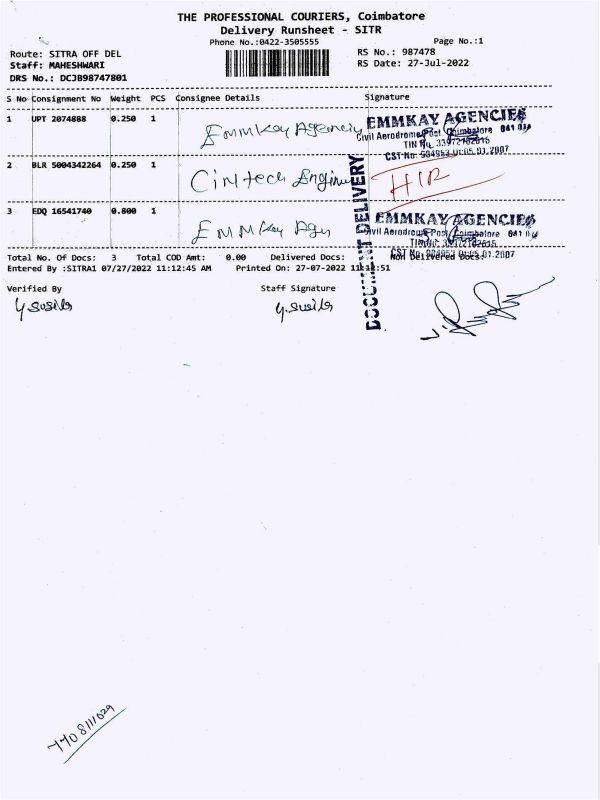 THE PROFESSIONAL COURIERS, Coimbatore
Delivery Runsheet - SITR
Phone No.:0422-3505555 Page No.:1
Route: SITRA OFF DEL RS No.: 987478
Staff: MAHESHWARI RS Date: 27-Jul-2022
DRS No.: DCJB98747801
S No Consignment No Weight PCS Consignee Details Signature
1 UPT 2074888 0.250 1 Emmkay Agenciy
EMMKAY AGENCIES
Civil Aerodrome Post Coimbatore 641 014
TIN No.
CST No: 05.01.2007
2 BLR 5004342264 0.250 1 Cintech
DOCUMENT DELIVERY
3 EDQ 16541740 0.800 1 Emmkay Agn
EMMKAY AGENCIES
Civil Aerodrome Post Coimbatore 641 014
Total No. Of Docs: 3 Total COD Amt: 0.00 Delivered Docs: Non Delivered Docs:
Entered By :SITRA1 07/27/2022 11:12:45 AM Printed On: 27-07-2022 11:12:51
Verified By Staff Signature
y.susila y.susila
7708111029